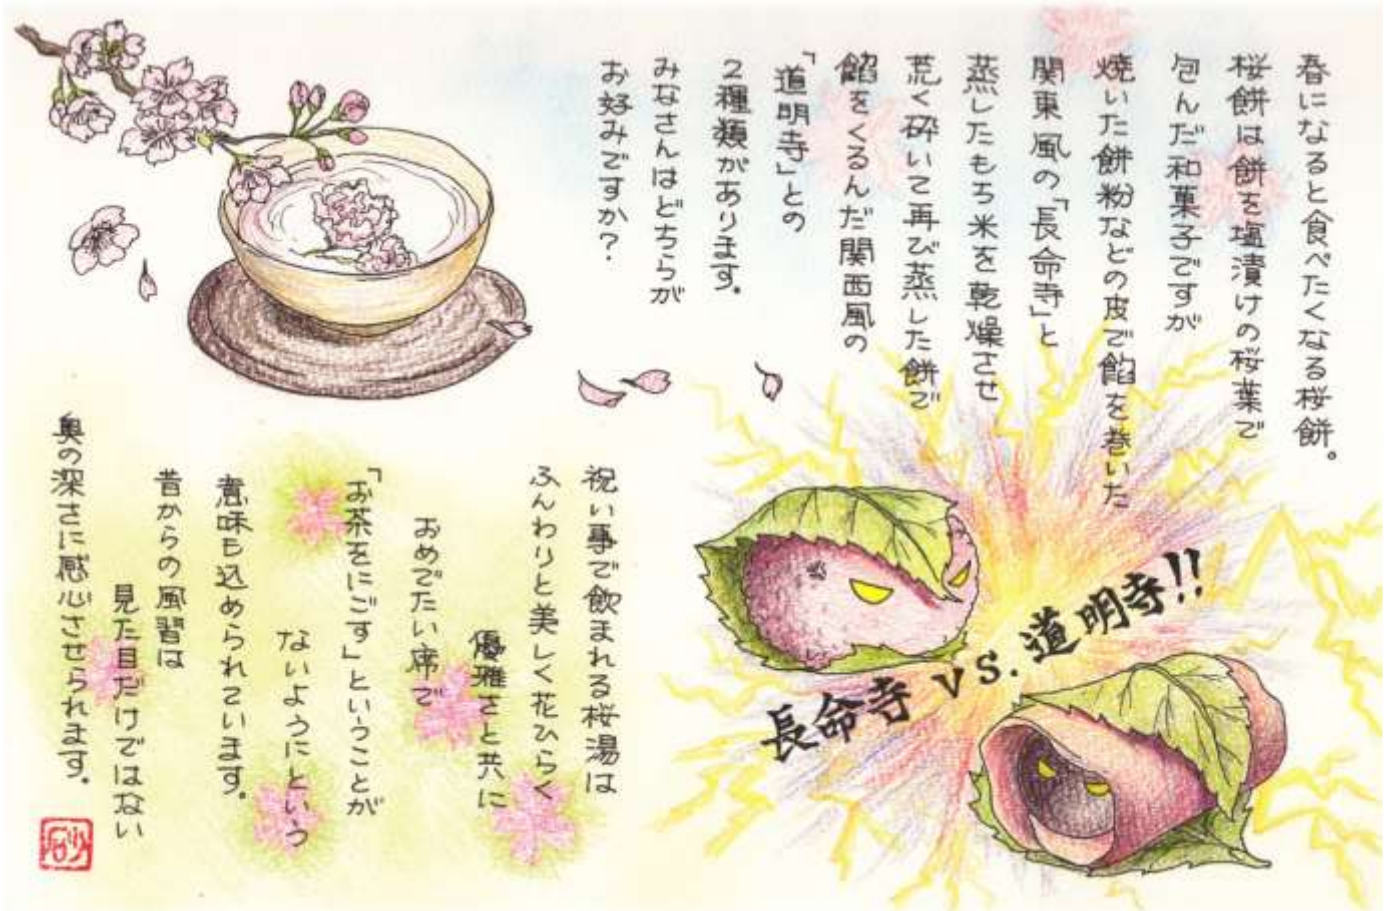 春になると食べたくなる桜餅。
桜餅は餅を塩漬けの桜葉で
包んだ和菓子ですが
焼いた餅粉などの皮で餡を巻いた
関東風の「長命寺」と
蒸したもち米を乾燥させ
荒く砕いて再び蒸した餅で
餡をくるんだ関西風の
「道明寺」との
2種類があります。
みなさんはどちらが
お好みですか?
長命寺 VS. 道明寺!!
祝い事で飲まれる桜湯は
ふんわりと美しく花ひらく
優雅さと共に
おめでたい席で
「お茶をにごす」ということが
ないようにという
意味も込められています。
昔からの風習は
見た目だけではない
奥の深さに感心させられます。